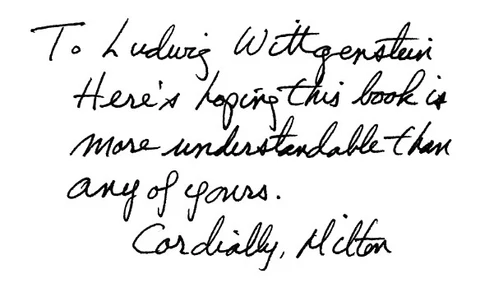 To Ludwig Wittgenstein
Here's hoping this book is
more understandable than
any of yours.
Cordially, Milton